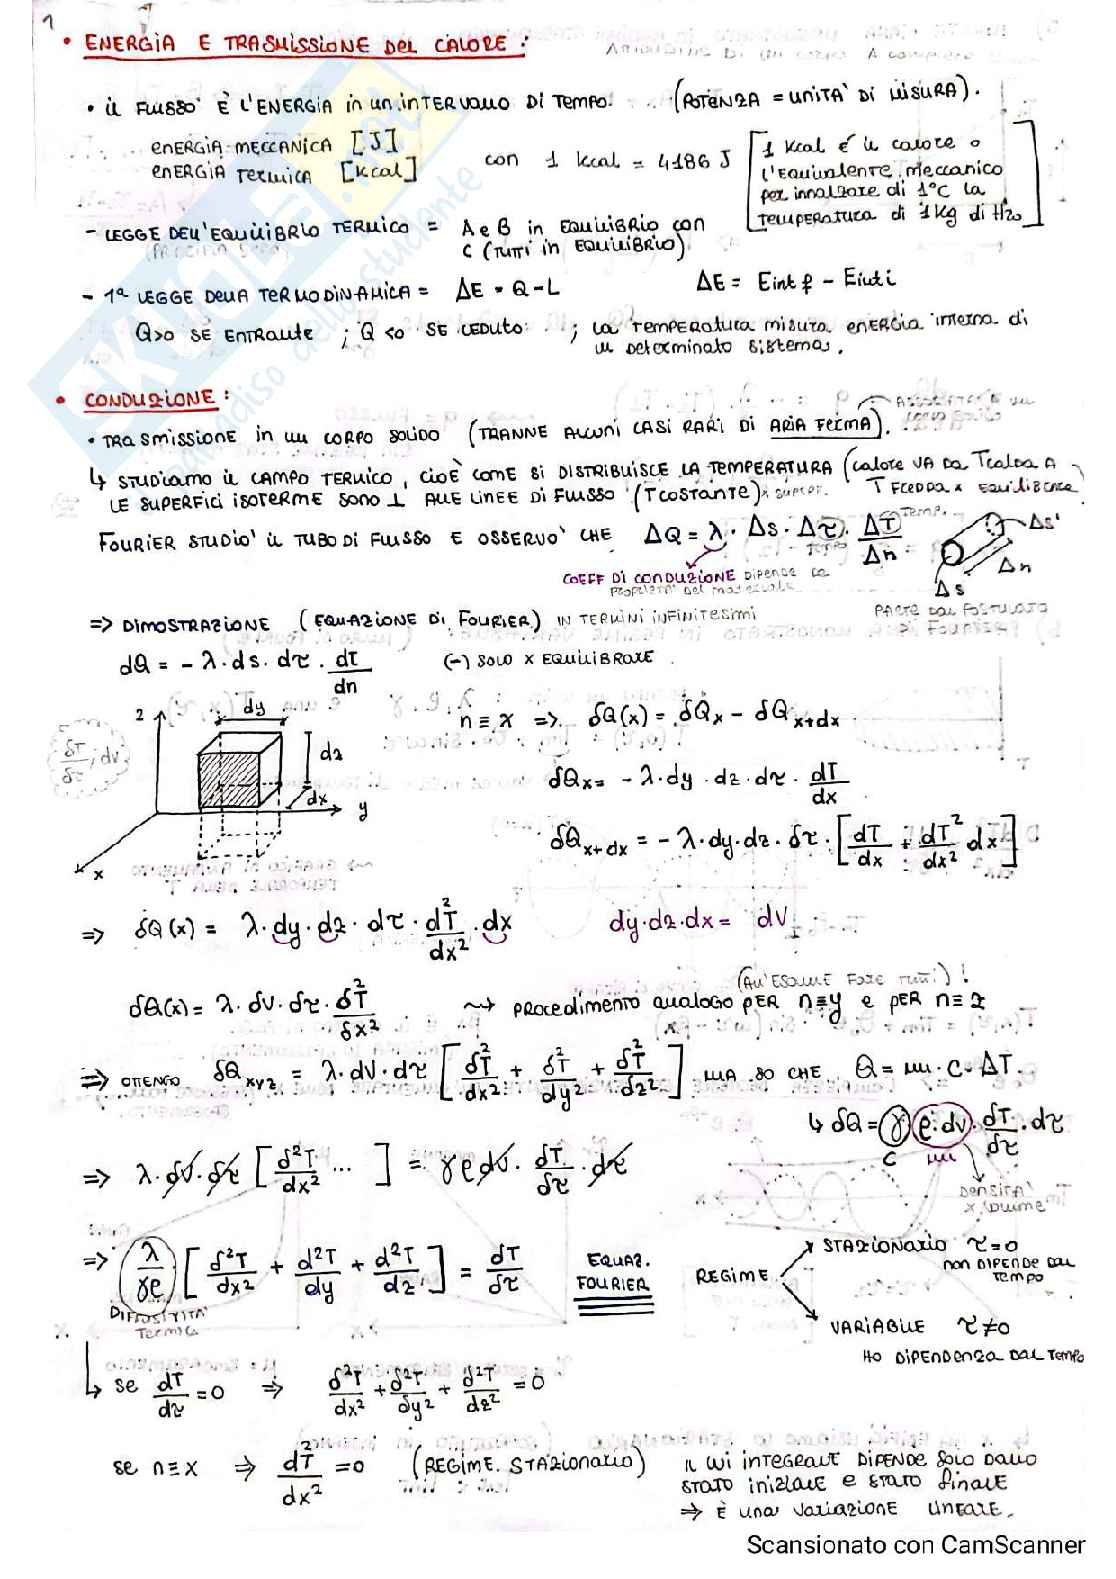 1
• ENERGIA E TRASMISSIONE DEL CALORE:
• IL FLUSSO È L'ENERGIA in un INTERVALLO DI TEMPO. (POTENZA = UNITÀ DI MISURA).
ENERGIA MECCANICA [J]
ENERGIA TERMICA [Kcal]
con 1 Kcal = 4186 J
[1 Kcal è il calore o
l'EQUIVALENTE MECCANICO
per innalzare di 1°C la
TEMPERATURA di 1 Kg di H2O]
- LEGGE DELL'EQUILIBRIO TERMICO = A e B in EQUILIBRIO con
C (TUTTI in EQUILIBRIO)
- 1ª LEGGE DELLA TERMODINAMICA = ΔE = Q - L ΔE = Eint f - Eint i
Q>0 SE ENTRANTE ; Q<0 SE CEDUTO ; LA TEMPERATURA misura ENERGIA interna di
un Determinato sistema.
• CONDUZIONE:
• TRASMISSIONE in un CORPO SOLIDO (TRANNE ALCUNI CASI RARI DI ARIA FERMA).
↳ STUDIAMO IL CAMPO TERMICO, CIOÈ COME SI DISTRIBUISCE LA TEMPERATURA (calore VA DA Tcalda A
T FREDDA x EQUILIBRARE
LE SUPERFICI ISOTERME SONO ⊥ ALLE LINEE DI FLUSSO (T COSTANTE) x superf.
FOURIER STUDIÒ IL TUBO DI FLUSSO E OSSERVÒ CHE ΔQ = λ · Δs · Δτ · ΔT/Δn
Temp.
tempo
COEFF DI CONDUZIONE DIPENDE DA
PROPRIETÀ DEL materiale
Δs'
Δn
Δs
PARTE DAL POSTULATO
DI FOURIER
=> DIMOSTRAZIONE (EQUAZIONE DI FOURIER) IN TERMINI INFINITESIMI
dQ = - λ · ds · dτ · dT/dn (-) SOLO x EQUILIBRARE.
z dy dz dx y x
δT/δτ; dv
n ≡ x => δQ(x) = δQx - δQx+dx
δQx = - λ · dy · dz · dτ · dT/dx
δQx+dx = - λ · dy · dz · δτ · [dT/dx + dT²/dx² dx]
=> δQ(x) = λ · dy · dz · dτ · d²T/dx² · dx dy·dz·dx = dV
(ALL'ESAME FARE TUTTI) !
δQ(x) = λ · δV · δτ · δ²T/δx² ⇝ PROCEDIMENTO ANALOGO PER n≡y e PER n≡z
=> OTTENGO δQxyz = λ · dV · dτ [δ²T/dx² + δ²T/dy² + δ²T/dz²] MA SO CHE Q = m · C · ΔT.
↳ δQ = γ ρ · dv · δT/δτ · dτ
c m
DENSITÀ
x Volume
=> λ · dV · dτ [δ²T/dx² ... ] = γ ρ dv · δT/δτ · dτ
=> λ/γρ [δ²T/dx² + d²T/dy + d²T/dz²] = δT/δτ EQUAZ.
FOURIER
DIFFUSIVITÀ
Termica
REGIME
STAZIONARIO τ=0
NON DIPENDE DAL
TEMPO
VARIABILE τ≠0
HO DIPENDENZA DAL TEMPO
↳ se dT/dτ = 0 => δ²T/dx² + δ²T/δy² + δ²T/dz² = 0
se n≡x => d²T/dx² = 0 (REGIME STAZIONARIO) IL CUI INTEGRALE DIPENDE SOLO DALLO
STATO INIZIALE E STATO FINALE
=> È UNA VARIAZIONE LINEARE.
Scansionato con CamScanner
SKUOLA.net
il paradiso dello studente